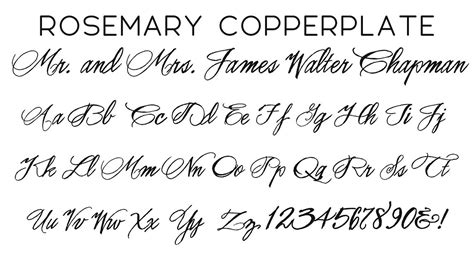 ROSEMARY COPPERPLATE
Mr. and Mrs. James Walter Chapman
Aa Bb Cc Dd Ee Ff Gg Hh Ii Jj
Kk Ll Mm Nn Oo Pp Qq Rr Ss Tt
Uu Vv Ww Xx Yy Zz 1234567890&!